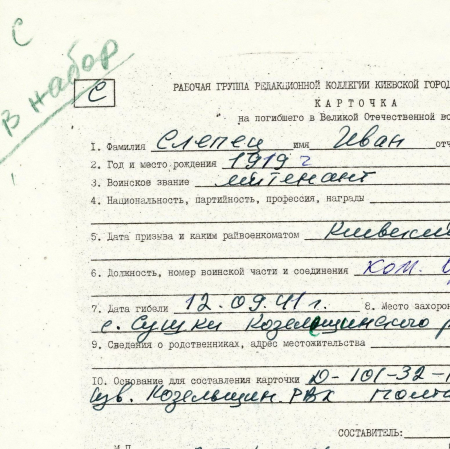 С
В набор
С
РАБОЧАЯ ГРУППА РЕДАКЦИОННОЙ КОЛЛЕГИИ КИЕВСКОЙ ГОРОД
КАРТОЧКА
на погибшего в Великой Отечественной во
1. Фамилия Слепец имя Иван отч
2. Год и место рождения 1919 г
3. Воинское звание лейтенант
4. Национальность, партийность, профессия, награды
5. Дата призыва и каким райвоенкоматом Киевским
6. Должность, номер воинской части и соединения ком.
7. Дата гибели 12.09.41 г. 8. Место захорон
с. Сушки Козельщинского р
9. Сведения о родственниках, адрес местожительства
10. Основание для составления карточки
Козельщин. РВК Полта
СОСТАВИТЕЛЬ: